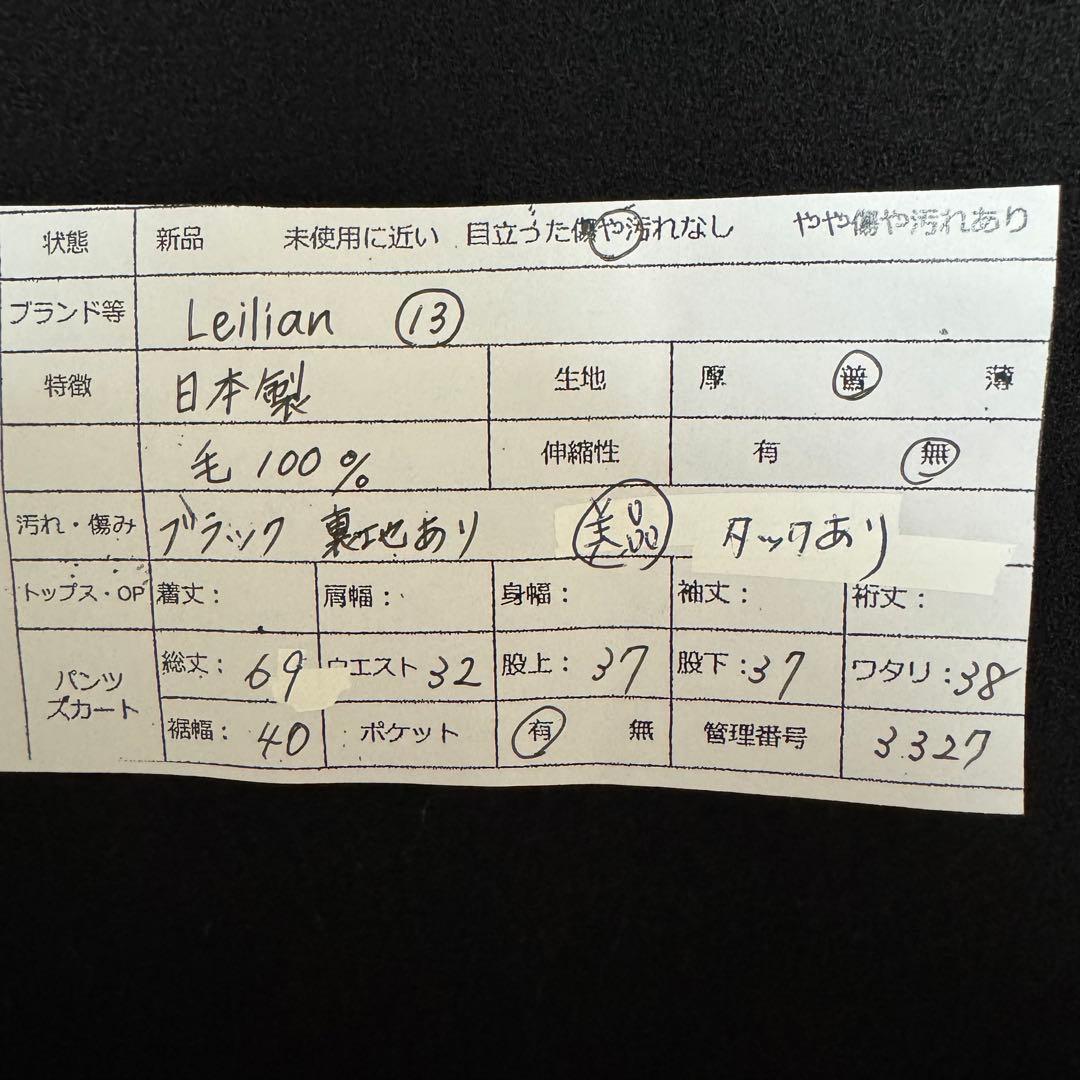 状態 新品 未使用に近い 目立った傷や汚れなし やや傷や汚れあり
ブランド等 Leilian 13
特徴 日本製 生地 厚 普 薄
毛 100% 伸縮性 有 無
汚れ・傷み ブラック 裏地あり 美品 タックあり
トップス・OP 着丈: 肩幅: 身幅: 袖丈: 裄丈:
パンツ スカート 総丈: 69 ウエスト 32 股上: 37 股下: 37 ワタリ: 38
裾幅: 40 ポケット 有 無 管理番号 3327